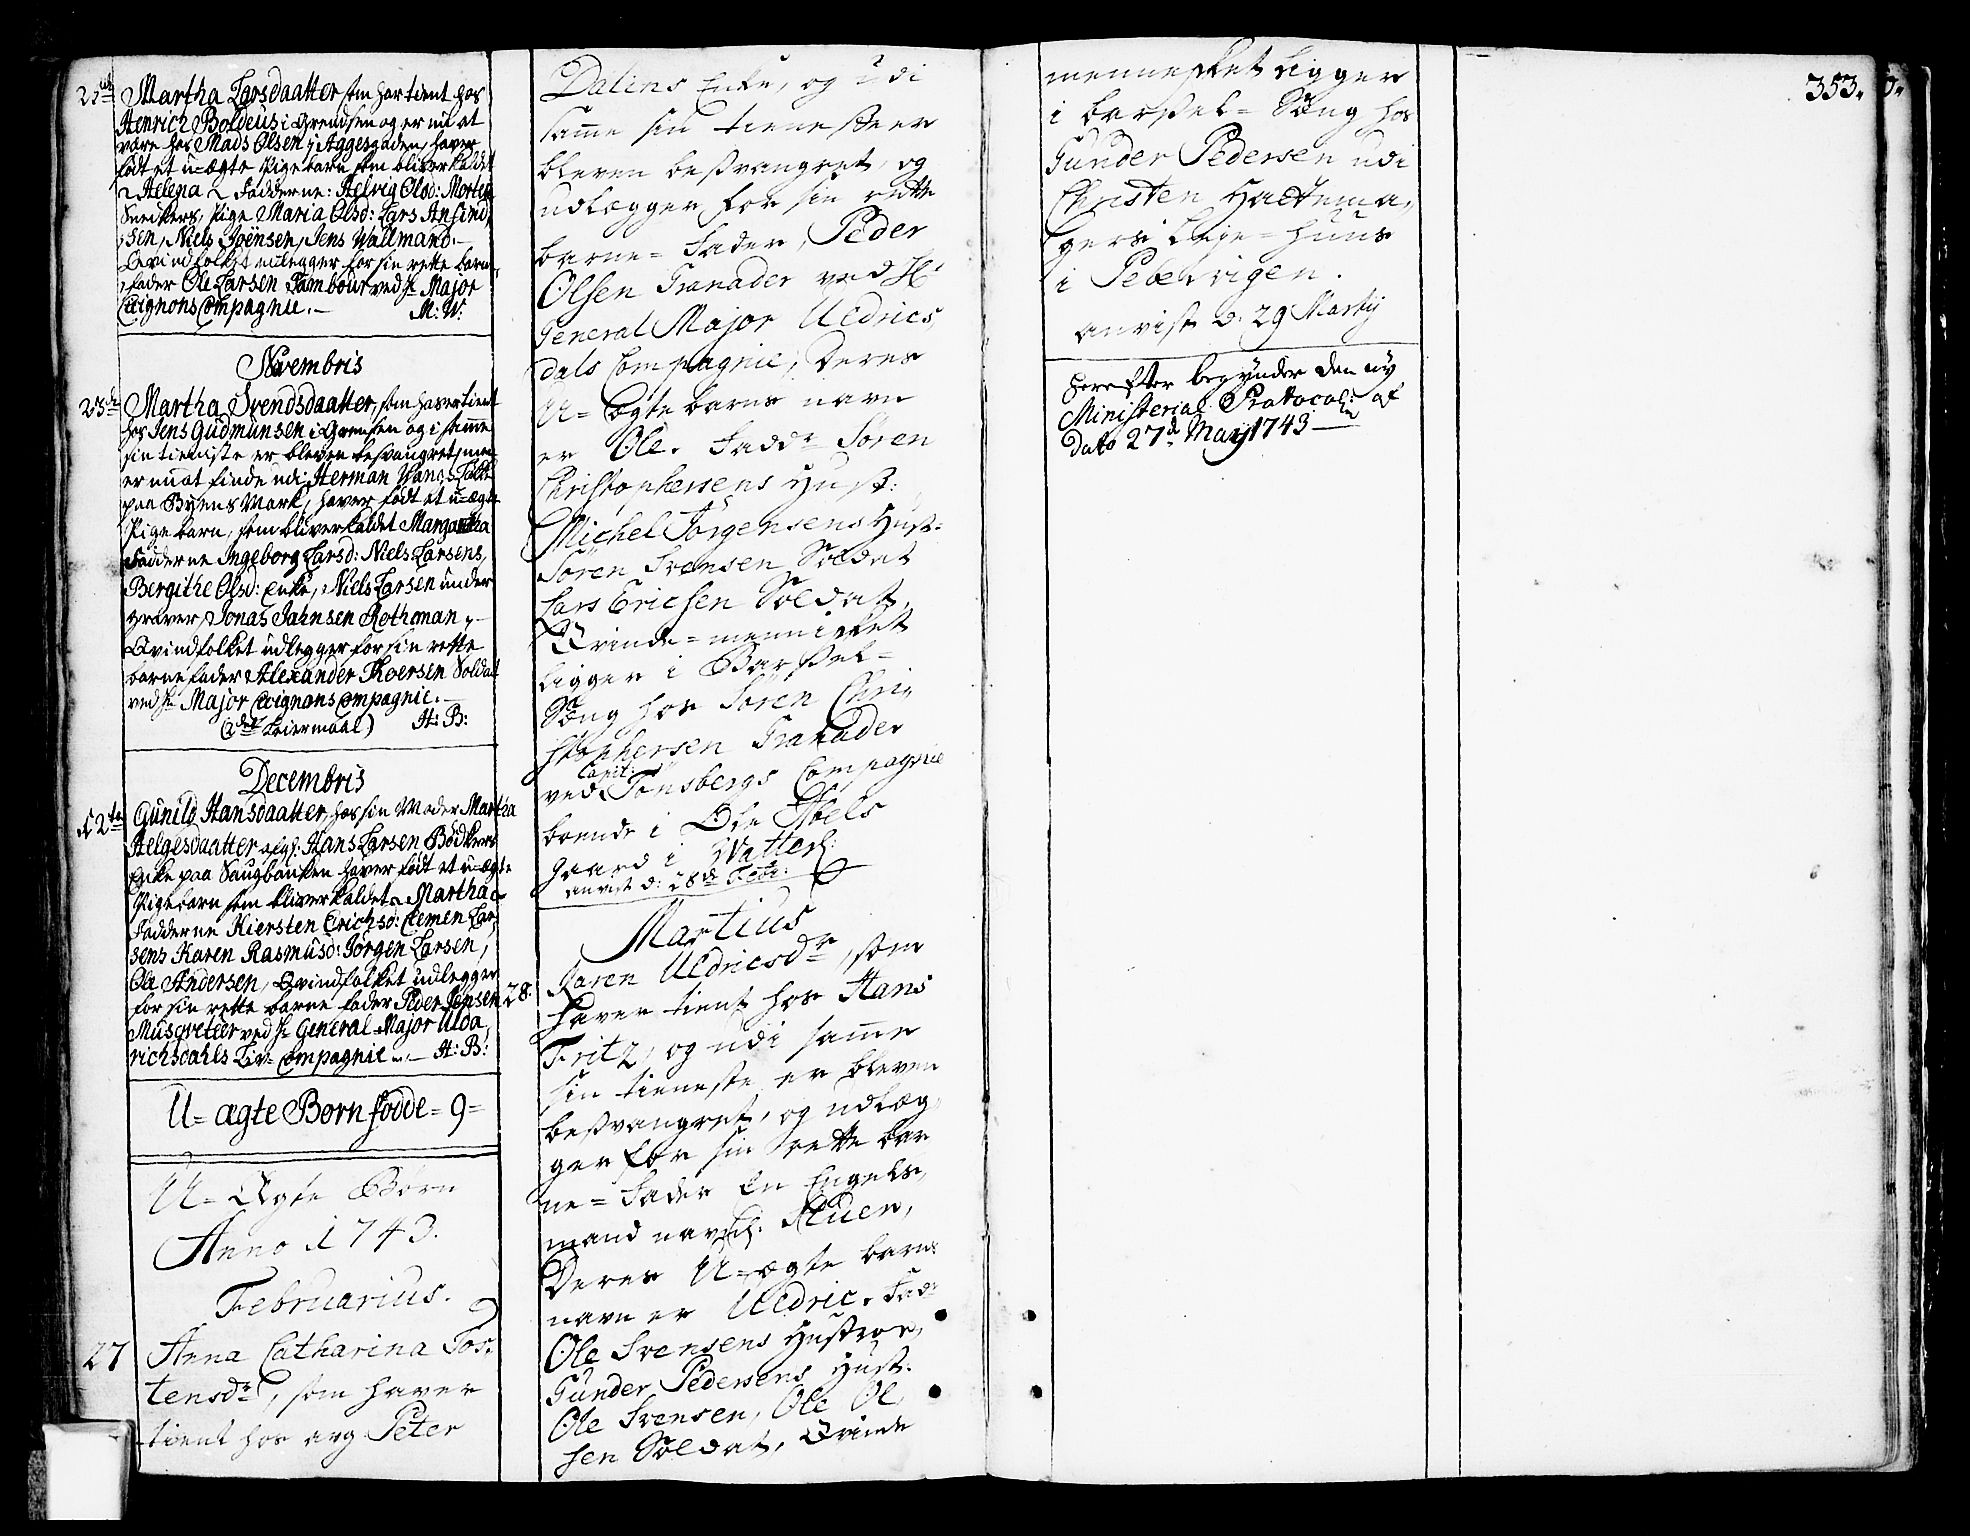 21de Martha Larsdaatter som har tient hos
Henrich Boldeus i Grendsen og er nu at
være hos Mads Olsen i Aggesgaden, haver
født et u-ægte Pigebarn som bliver kaldet
Helena Fadderne: Helvig Olsd: Morten
Snedkers, Pige Maria Olsd: Lars
sen, Niels Joensen, Jens Wallmand.
Qvindfolket udlegger for sin rette barne
fader Ole Larsen Tambour ved Hr Major
Crignons Compagnie. M: W:
Novembris
23de Martha Svendsdaatter, som haver tient
hos Jens Gudmunsen i Grensen og i samme
sin tieniste er bleven besvangret, men
er nu at finde udi Herman Wangs
paa Byens Mark, haver født et u-ægte
Pige barn, som bliver kaldet Margaretha
Fadderne Ingeborg Larsd: Niels Larsens,
Bergithe Olsd: Enke, Niels Larsen under
graver, Jonas Jahnsen Rothman,
Qvindfolket udlegger for sin rette
barnefader Alexander Iversen Soldat
ved Hr Major Crignons Compagnie.
(2det Leiermaal) H: B:
Decembris
12te Gunild Hansdaatter, hos sin Moder Martha
Helgesdaatter afg: Hans Larsen Bødkers
Enke paa Saugbanken haver født et u-ægte
Pigebarn som bliver kaldet Martha
Fadderne Kiersten Erichsd: Clemen Lar,
sens Karen Rasmusd: Jørgen Larsen,
Ole Andersen, Qvindfolket udlegger
for sin rette barne fader Peder Jensen
Musqveteer ved Hr General Major Ulda,
richsdahls Liv-Compagnie. H: B:
U-ægte Børn fødde = 9 =
U-Ægte Børn
Anno 1743.
Februarius.
27 Anna Catharina Tos,
tensdr, som haver
tient hos avg Peter
Dalins Enke, og udi
samme sin tieneste er
bleven besvangret, og
udlægger for sin rette
barne-Fader, Peder
Olsen Granader ved Hr
General Major Uldrics,
dals Compagnie; Deres
U-ægte barns navn
er Ole. Faddr Søren
Christophersens Hust:
Michel Jørgensens Hust:
Søren Svensen Soldat
Lars Ericsen Soldat,
Qvinde-mennisket
ligger i Barsel-
Sæng hos Søren Chri,,
stophersen Granader
ved Capit: Tønsbergs Compagnie
boende i Ole Abels
gaard i Watterl:
anvist d: 28de Febr:
Martius
28. Karen Uldricsdr, som
haver tient hos Hans
Fritz, og udi samme
sin tieneste er bleven
besvangret, og udlæg,
ger for sin rette bar
ne-Fader En Engels,
mand navnl:
Deres U-ægte barns
navn er Uldric. Fad:
Ole Svensens Hustroe,
Gunder Pedersens Hust:
Ole Svensen, Ole Ol,
sen Soldat, Qvinde
mennesket ligger
i barsel-Sæng hos
Gunder Pedersen udi
Christen Hattema,
gers Leje-huus
i Pebervigen.
anvist d: 29 Martij
Herefter begynder den ny
Ministerial Protocol: af
Dato 27de Maij 1743
353.